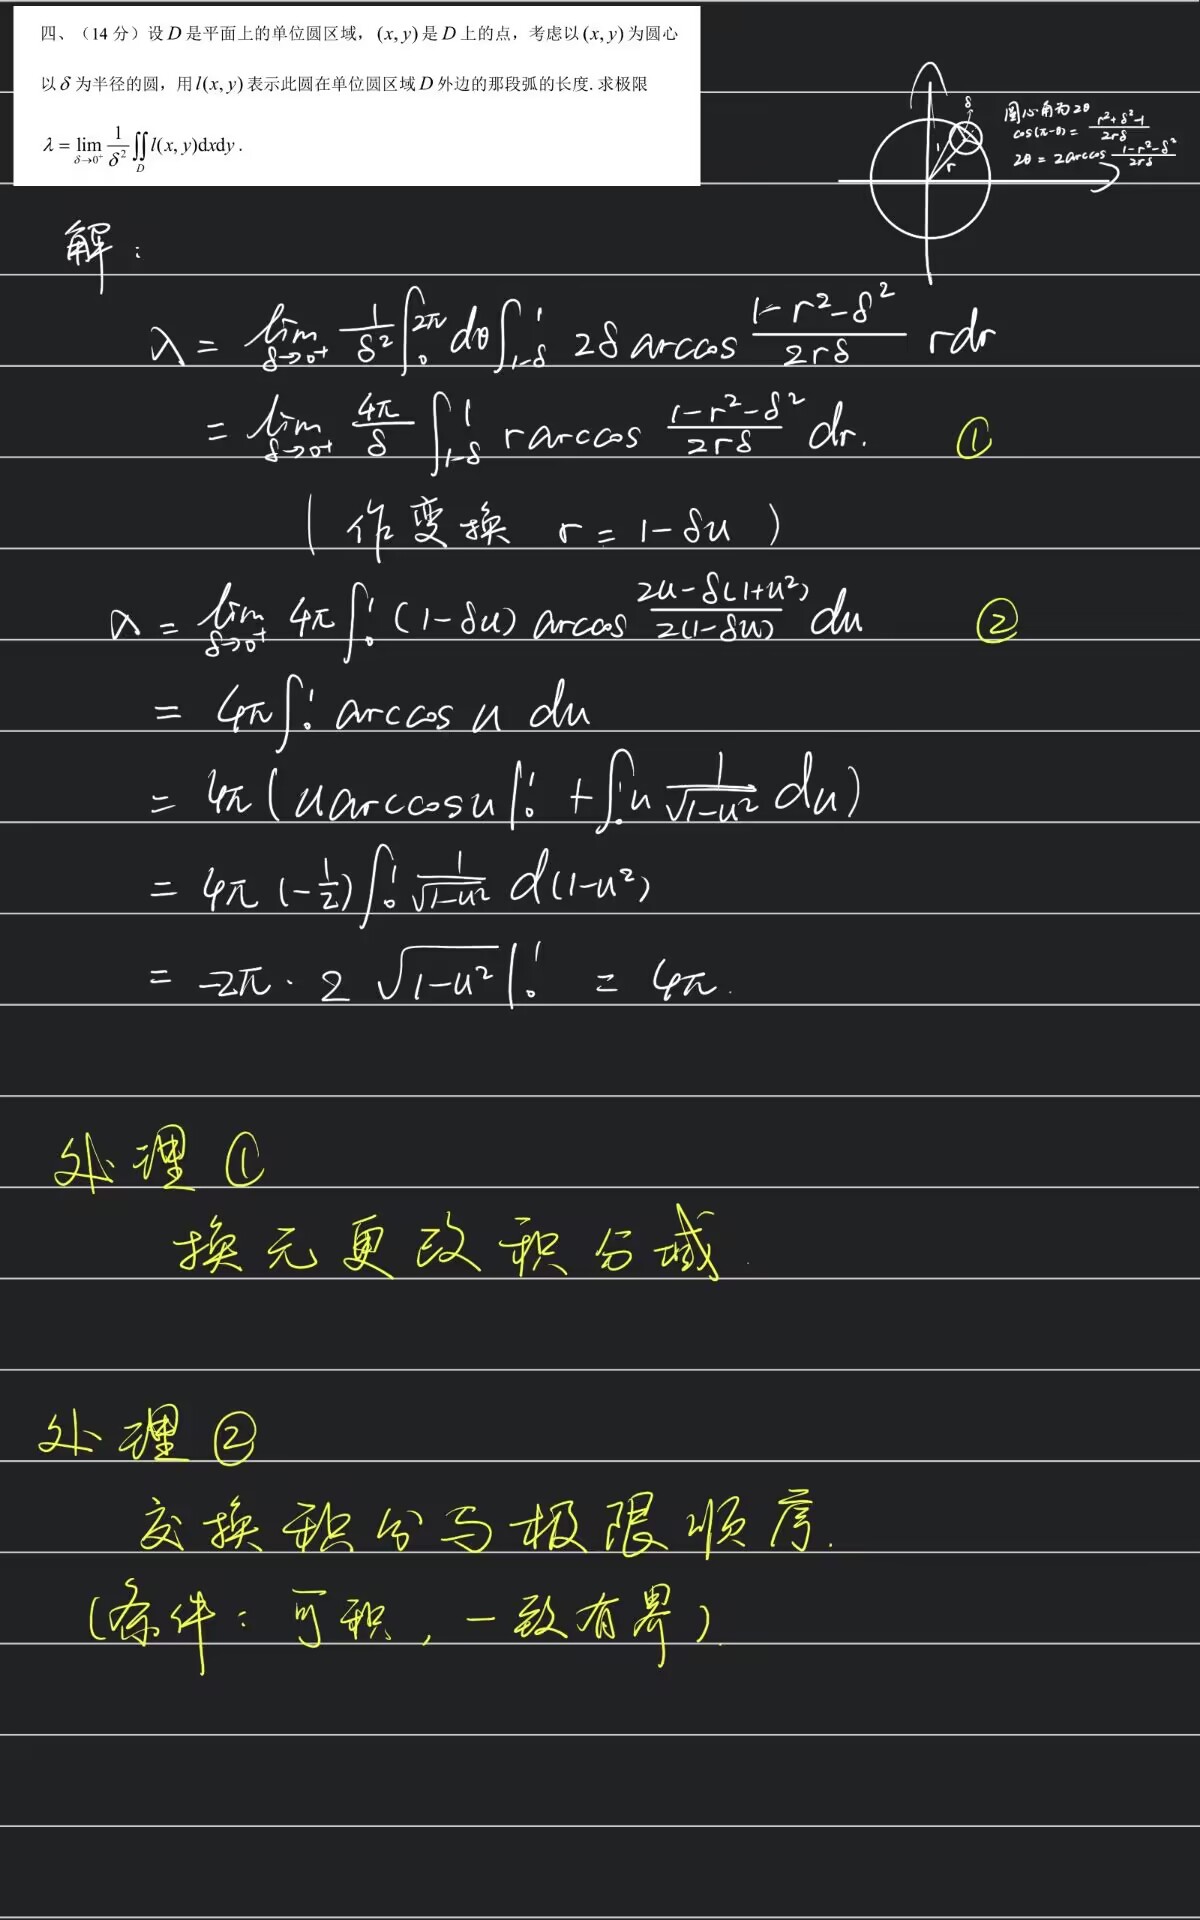 四、（14 分）设 D 是平面上的单位圆区域，(x, y) 是 D 上的点，考虑以 (x, y) 为圆心
以 δ 为半径的圆，用 l(x, y) 表示此圆在单位圆区域 D 外边的那段弧的长度. 求极限
λ = lim_{δ→0⁺} 1/δ² ∬_D l(x, y)dxdy .
δ
1
r
圆心角为 2θ
cos(π-θ) = (r²+δ²-1)/(2rδ)
2θ = 2arccos (1-r²-δ²)/(2rδ)
解：
λ = lim_{δ→0⁺} 1/δ² ∫₀^{2π} dθ ∫_{1-δ}^{1} 2δ arccos (1-r²-δ²)/(2rδ) rdr
= lim_{δ→0⁺} 4π/δ ∫_{1-δ}^{1} r arccos (1-r²-δ²)/(2rδ) dr. ①
(作变换 r = 1-δu)
λ = lim_{δ→0⁺} 4π ∫₀¹ (1-δu) arccos (2u-δ(1+u²))/(2(1-δu)) du ②
= 4π ∫₀¹ arccos u du
= 4π (u arccos u |₀¹ + ∫₀¹ u 1/√(1-u²) du)
= 4π (-1/2) ∫₀¹ 1/√(1-u²) d(1-u²)
= -2π · 2 √(1-u²) |₀¹ = 4π.
处理 ①
换元更改积分域.
处理 ②
交换积分与极限顺序.
(条件：可积，一致有界).